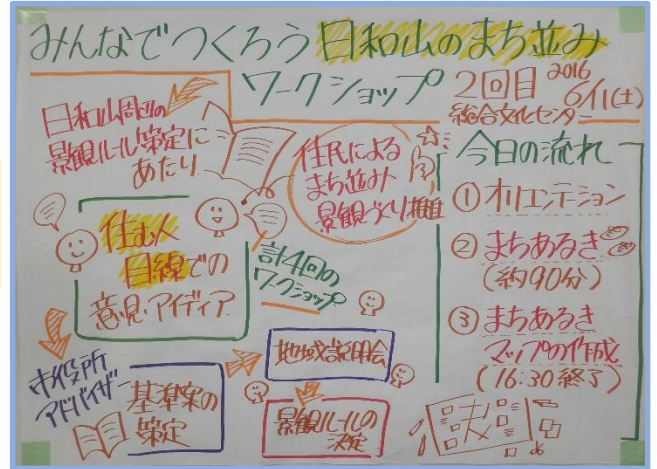 みんなでつくろう日和山のまち並み
ワークショップ
2回目 2016 6/11(土)
総合文化センター
日和山周辺の
景観ルール策定に
あたり
住民による
まち並み
景観づくり推進
住む人
目線での
意見・アイディア
計4回の
ワークショップ
市役所
アドバイザー
基準案の
策定
地域説明会
景観ルールの
決定
今日の流れ
① オリエンテーション
② まちあるき
(約90分)
③ まちあるき
マップの作成
(16:30終了)